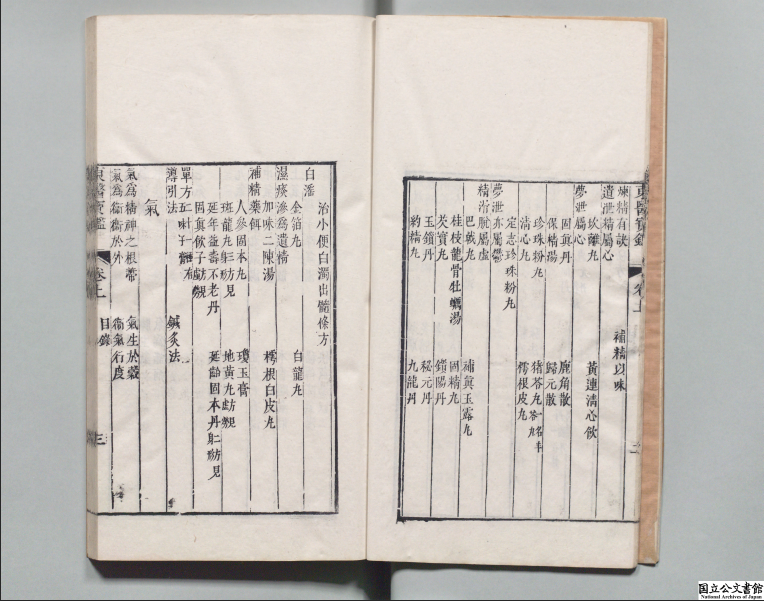 東醫寶鑑
卷上
二
煉精有訣 補精以味
遺泄精屬心
坎離丸 黃連清心飲
夢泄屬心
固真丹 鹿角散
保精湯 歸元散
珍珠粉丸 猪苓丸
清心丸 樗根皮丸
定志珍珠粉丸
夢泄亦屬鬱
精滑脫屬虛
巴戟丸 補真玉露丸
桂枝龍骨牡蠣湯
芡實丸 固精丸
玉鎖丹 鎖陽丹
秘元丹
約精丸 九龍丹
白淫
治小便白濁出髓條方
金箔丸 白龍丸
濕痰滲爲遺精
加味二陳湯 樗根白皮丸
補精藥餌
人參固本丸 瓊玉膏
斑龍丸 地黃丸
延年益壽不老丹 延齡固本丹
固真飲子
單方
導引法 鍼灸法
氣
氣爲精神之根蔕 氣生於穀
氣爲衛衛於外 衛氣行度
東醫寶鑑
卷上
目錄
三
国立公文書館
National Archives of Japan